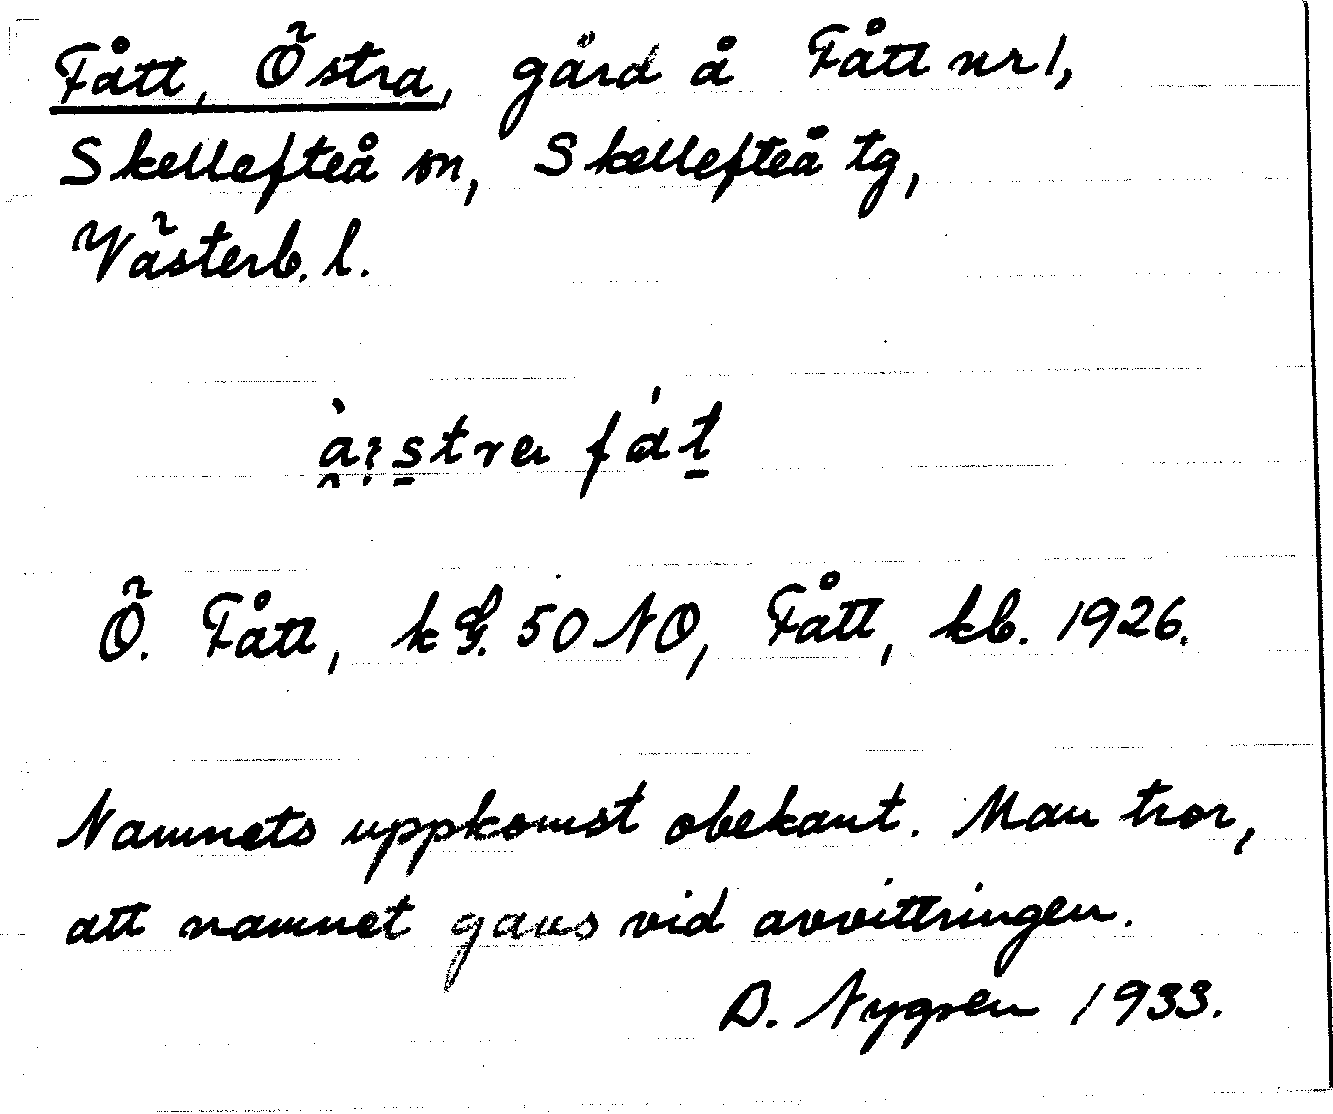 Fått, Östra, gård å Fått nr 1,
Skellefteå sn, Skellefteå tg,
Västerb. l.
fát
Ö. Fått, k G. 50 NO, Fått, kb. 1926.
Namnets uppkomst obekant. Man tror,
att namnet gavs vid avvittringen.
D. Nygren 1933.